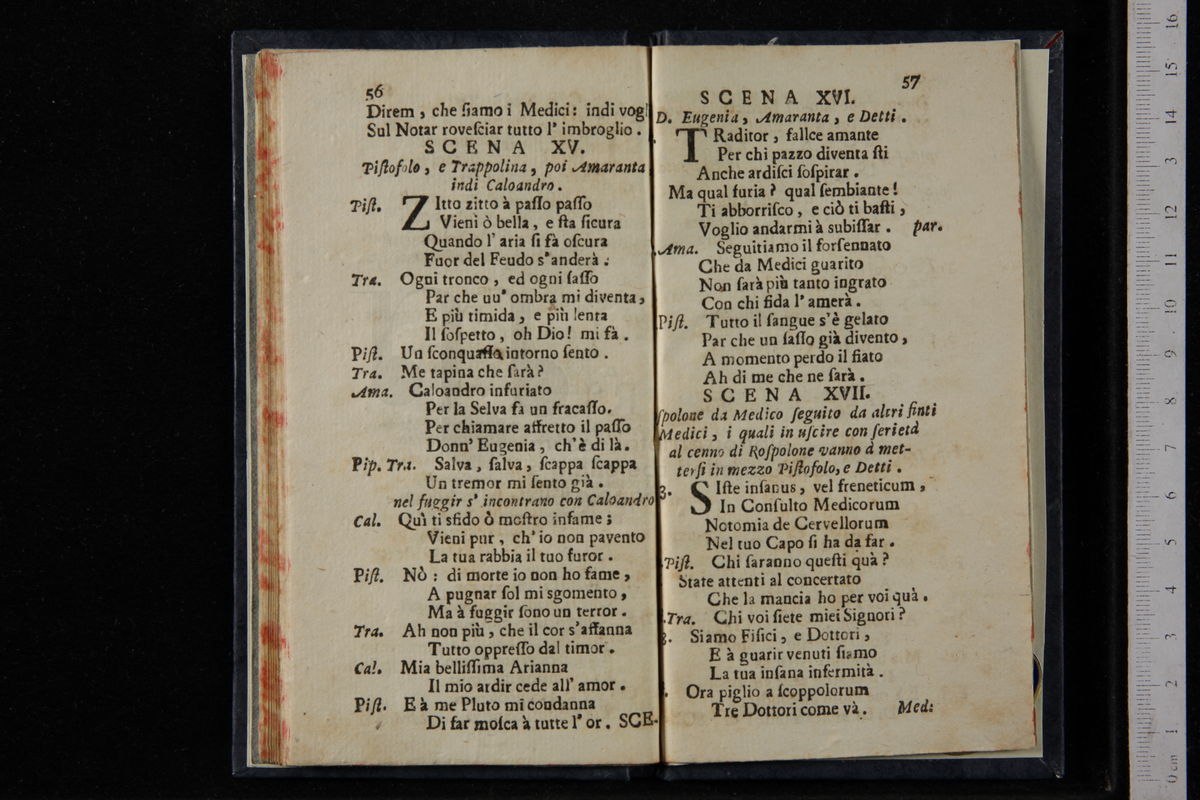 56
Direm, che ſiamo i Medici: indi vogl
Sul Notar roveſciar tutto l' imbroglio.
SCENA XV.
Piſtofolo, e Trappolina, poi Amaranta
indi Caloandro.
Piſt. ZItto zitto à paſſo paſſo
Vieni ò bella, e ſta ſicura
Quando l' aria ſi fà oſcura
Fuor del Feudo s'anderà.
Tra. Ogni tronco, ed ogni ſaſſo
Par che uu' ombra mi diventa,
E più timida, e più lenta
Il ſoſpetto, oh Dio! mi fà.
Piſt. Un ſconquaſſo intorno ſento.
Tra. Me tapina che ſarà?
Ama. Caloandro infuriato
Per la Selva fa un fracaſſo.
Per chiamare affretto il paſſo
Donn' Eugenia, ch'è di là.
Pip. Tra. Salva, ſalva, ſcappa ſcappa
Un tremor mi ſento già.
nel fuggir s' incontrano con Caloandro
Cal. Quì ti sfido ò moſtro infame;
Vieni pur, ch' io non pavento
La tua rabbia il tuo furor.
Piſt. Nò: di morte io non ho fame,
A pugnar ſol mi sgomento,
Ma à fuggir ſono un terror.
Tra. Ah non più, che il cor s'affanna
Tutto oppreſſo dal timor.
Cal. Mia belliſſima Arianna
Il mio ardir cede all' amor.
Piſt. E à me Pluto mi condanna
Di far moſca à tutte l' or. SCE-
57
SCENA XVI.
D. Eugenia, Amaranta, e Detti.
TRaditor, fallce amante
Per chi pazzo diventa ſti
Anche ardiſci ſoſpirar.
Ma qual furia? qual ſembiante!
Ti abborriſco, e ciò ti baſti,
Voglio andarmi à subiſſar. par.
Ama. Seguitiamo il forſennato
Che da Medici guarito
Non ſarà più tanto ingrato
Con chi fida l' amerà.
Piſt. Tutto il ſangue s'è gelato
Par che un ſaſſo già divento,
A momento perdo il fiato
Ah di me che ne ſarà.
SCENA XVII.
ſpolone da Medico ſeguito da altri finti
Medici, i quali in uſcire con ſerietà
al cenno di Roſpolone vanno à met-
terſi in mezzo Piſtofolo, e Detti.
SIſte inſanus, vel freneticum,
In Conſulto Medicorum
Notomia de Cervellorum
Nel tuo Capo ſi ha da far.
Piſt. Chi ſaranno queſti quà?
State attenti al concertato
Che la mancia ho per voi quà.
Tra. Chi voi ſiete miei Signori?
Siamo Fiſici, e Dottori,
E à guarir venuti ſiamo
La tua inſana infermità.
Ora piglio a ſcoppolorum
Tre Dottori come và. Med:
0 cm 1 2 3 4 5 6 7 8 9 10 11 12 13 14 15 16